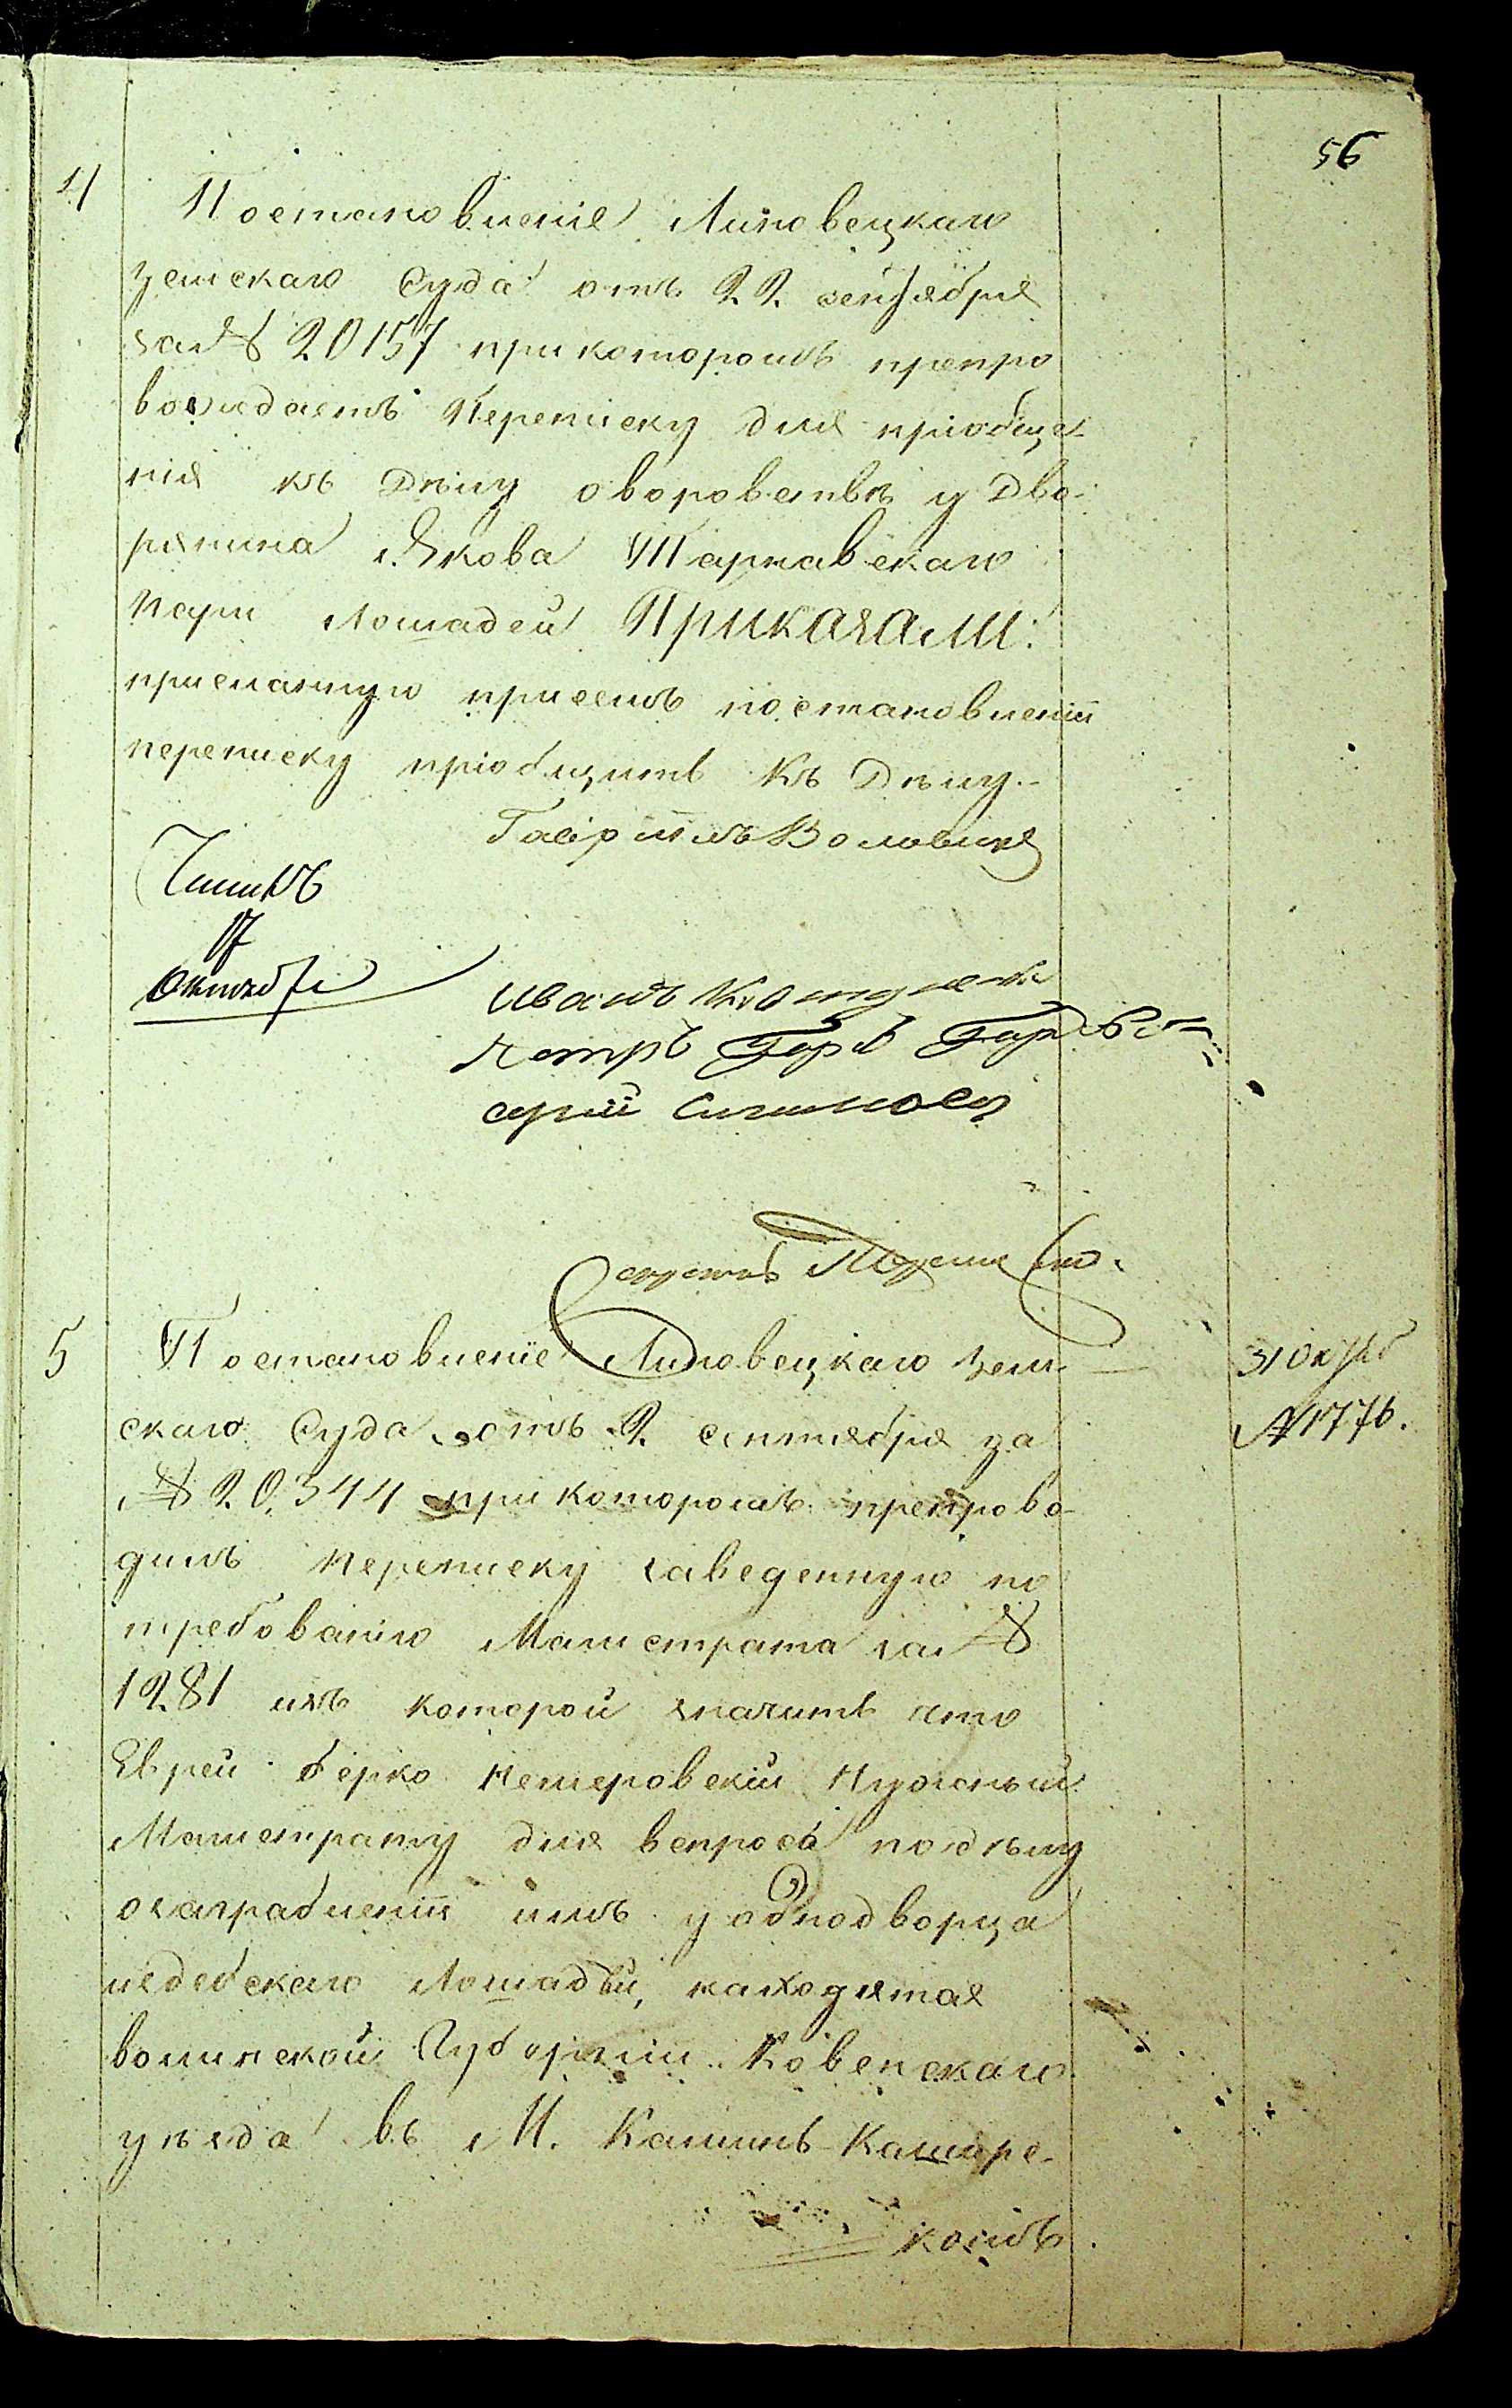 56
4
Постановленіе Липовецкаго
земскаго Суда отъ 22 сентября
за № 20157 при которомъ препро
вождаетъ Переписку для пріобще-
нія къ Дѣлу о воровствѣ у Дво-
рянина Якова Тарнавскаго
пары лошадей Приказали:
присланную присемъ постановленіи
переписку пріобщить Къ Дѣлу.-
Гавріилъ
17
Октября
Иванъ
Петръ
5
Постановленіе Липовецкаго Зем
скаго Суда отъ 2 сентября за
№ 20,344 при которомъ препрово-
дилъ переписку заведенную по
требованію Магистрата за №
1281 изъ которой значитъ что
Еврей Берко Немеровскій Нужный
Магистрату для вспроса по дѣлу
о заграбленіи имъ у однодворца
лошадѣй, находятся
волынской Губерніи Ковенскаго
уѣзда въ М. Каминь-Кашире-
комъ
31 Октяб
№ 1776.